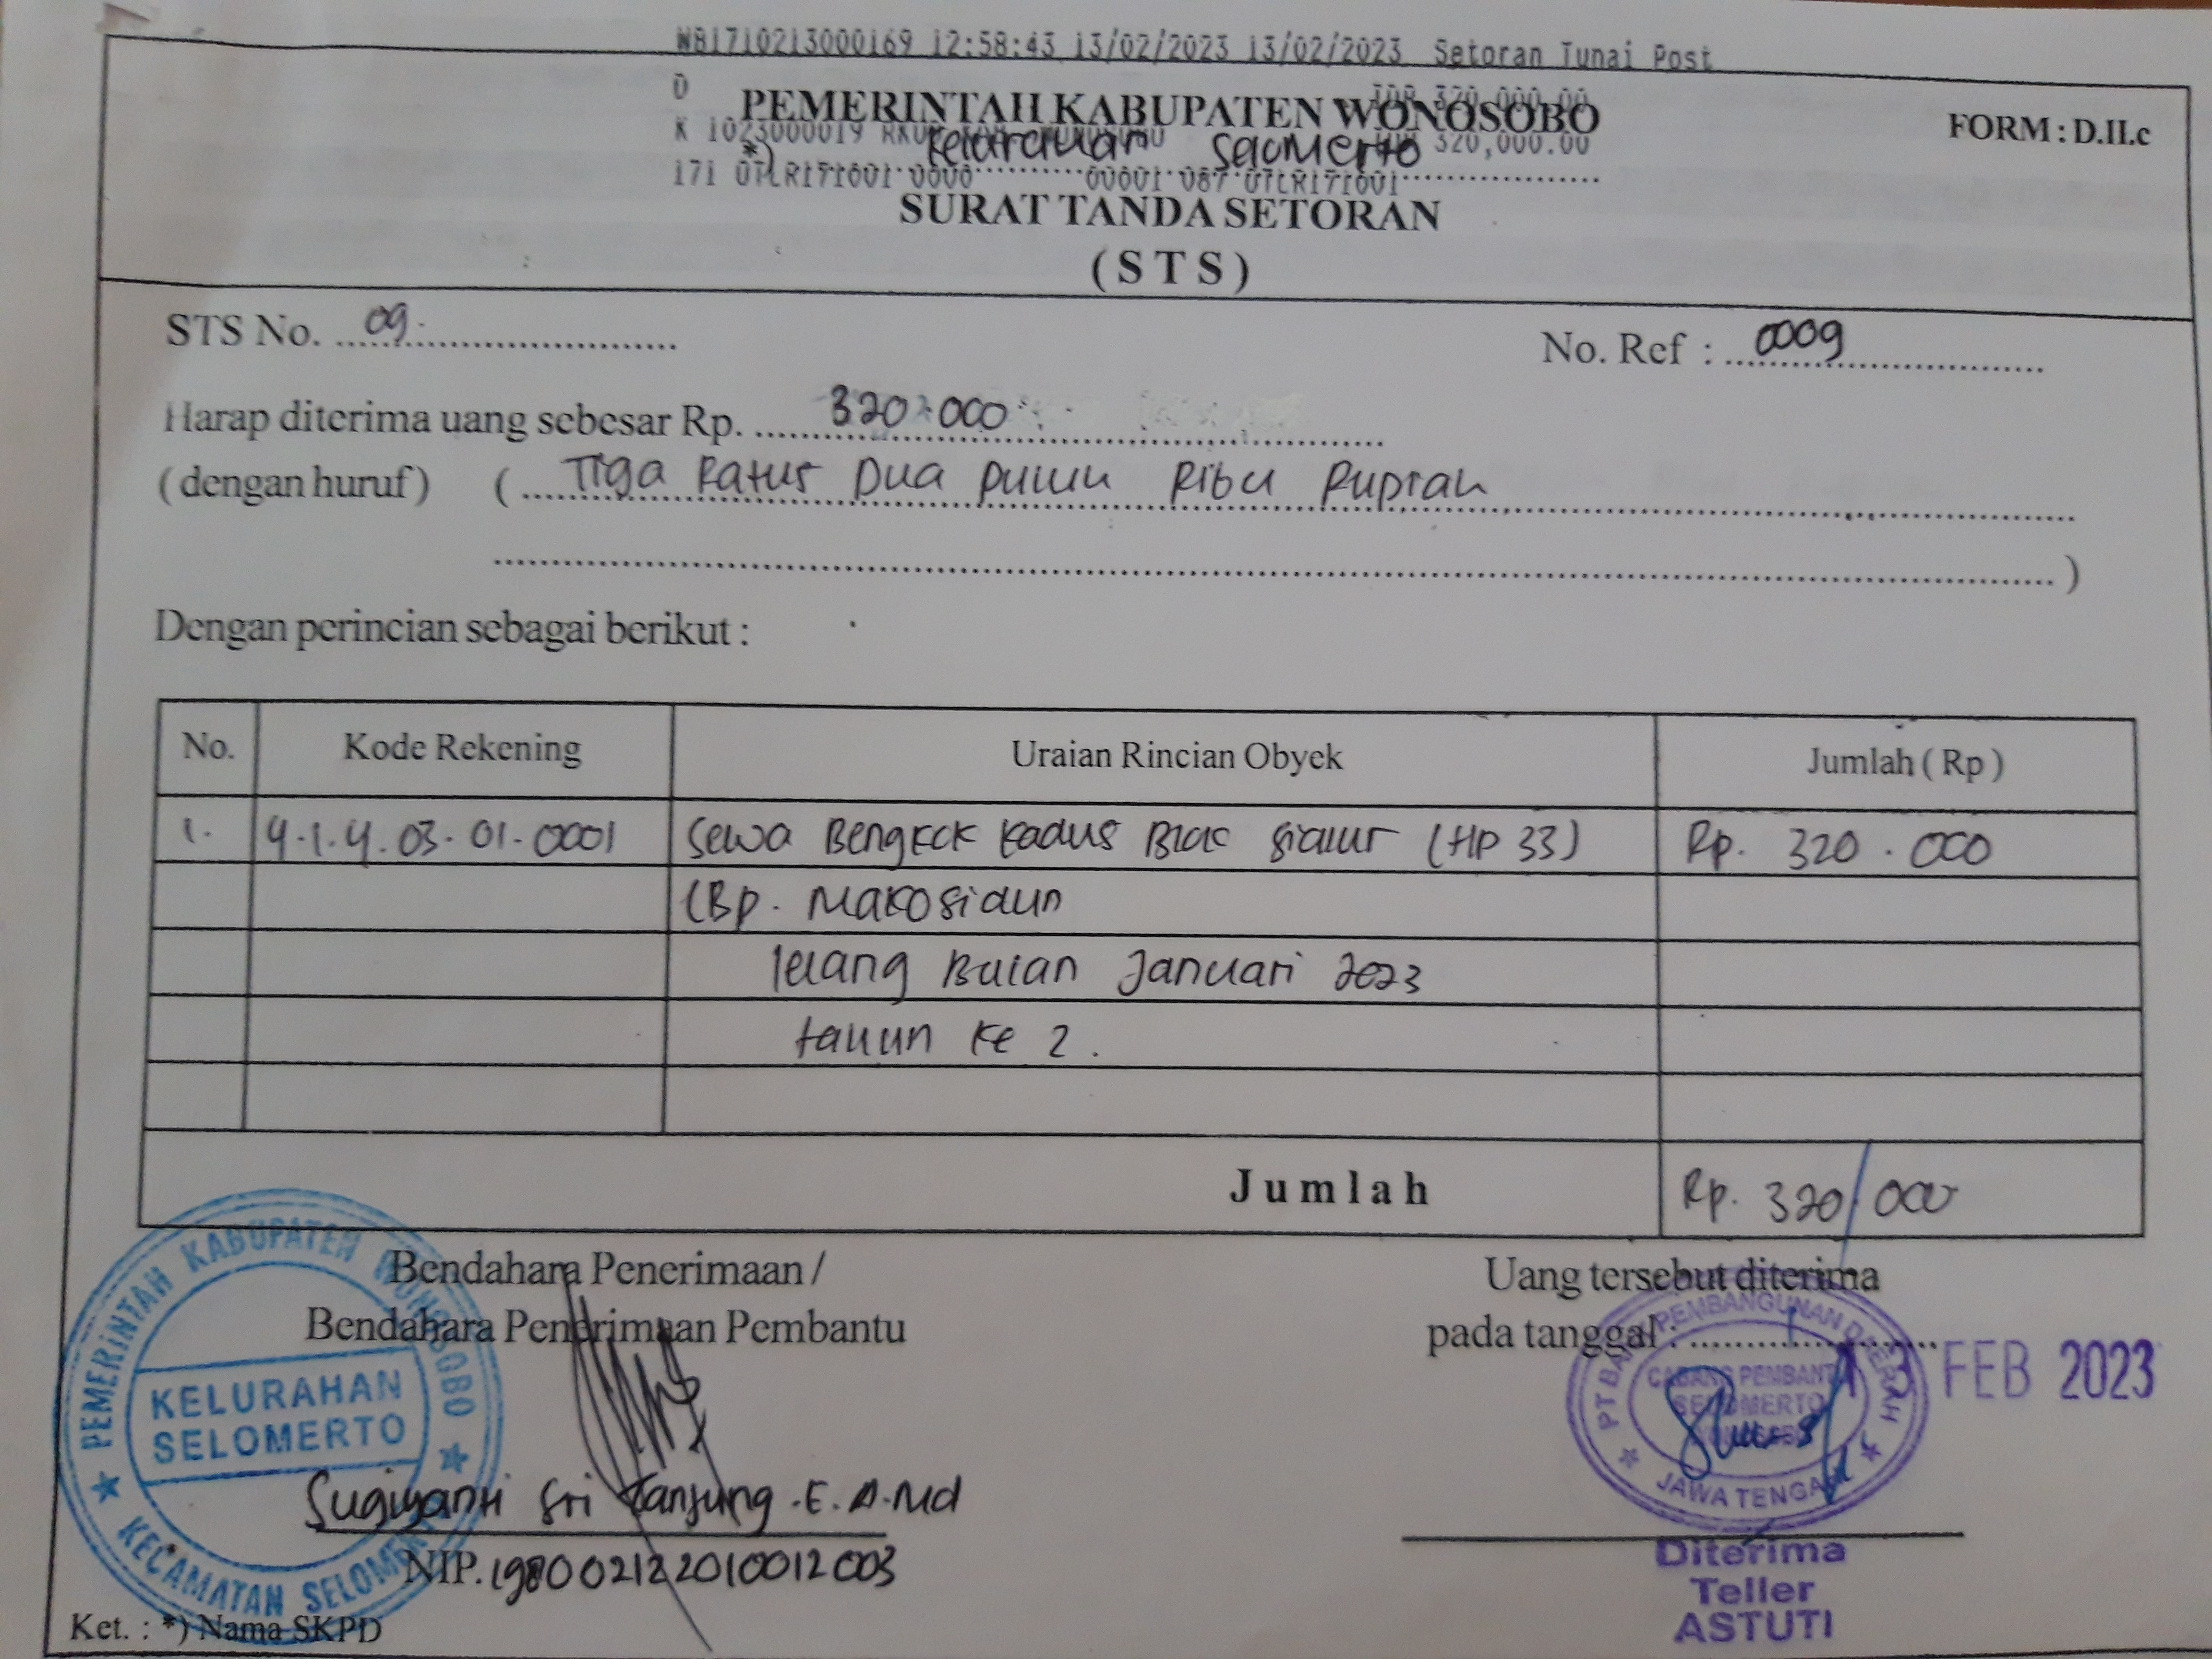 WB1710213000169 12:58:43 13/02/2023 13/02/2023 Setoran Tunai Post
D IDR 320,000.00
PEMERINTAH KABUPATEN WONOSOBO
FORM : D.II.c
K 1023000019 320,000.00
*) Kelurahan Selomerto
171 UTLR171001 0000 00001 087 UTLR171001
SURAT TANDA SETORAN
( S T S )
STS No. 09.
No. Ref : 0009
Harap diterima uang sebesar Rp. 320.000
( dengan huruf ) ( Tiga Ratus Dua Puluh Ribu Rupiah
)
Dengan perincian sebagai berikut :
No. Kode Rekening Uraian Rincian Obyek Jumlah ( Rp )
1. 4.1.4.03.01.0001 Sewa Bengkok Kadus Blok (HP 33) Rp. 320.000
(Bp. Makosidun
lelang Bulan Januari 2023
tahun ke 2.
Jumlah Rp. 320.000
Bendahara Penerimaan /
Bendahara Penerimaan Pembantu
Uang tersebut diterima
pada tanggal :
13 FEB 2023
PEMERINTAH KABUPATEN WONOSOBO
KELURAHAN
SELOMERTO
KECAMATAN SELOMERTO
PT BANK PEMBANGUNAN DAERAH
CABANG PEMBANTU
SELOMERTO
WONOSOBO
JAWA TENGAH
Sugiyanti Sri Tanjung .E. A.Md
NIP. 198002122010012003
Diterima
Teller
ASTUTI
Ket. : *) Nama SKPD